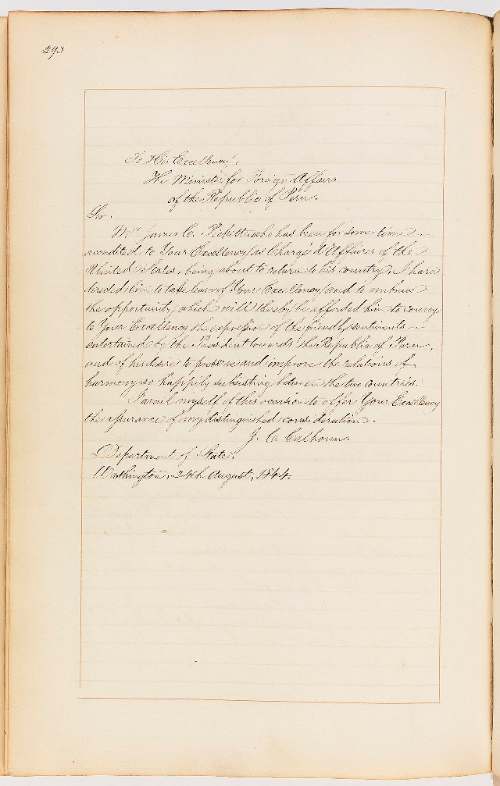 293
To His Excellency,
The Minister for Foreign Affairs
of the Republic of Peru.
Sir.
Mr. James C. Pickett who has been for some time
accredited to Your Excellency as Chargé d'Affaires of the
United States, being about to return to his country, I have
desired him to take leave of Your Excellency, and to embrace
the opportunity which will thereby be afforded him to convey
to Your Excellency the expression of the friendly sentiments
entertained by the President towards the Republic of Peru,
and of his desire to preserve and improve the relations of
harmony so happily subsisting between the two countries.
I avail myself of this occasion to offer Your Excellency
the assurance of my distinguished consideration.
J. C. Calhoun.
Department of State,
Washington, 24th August, 1844.